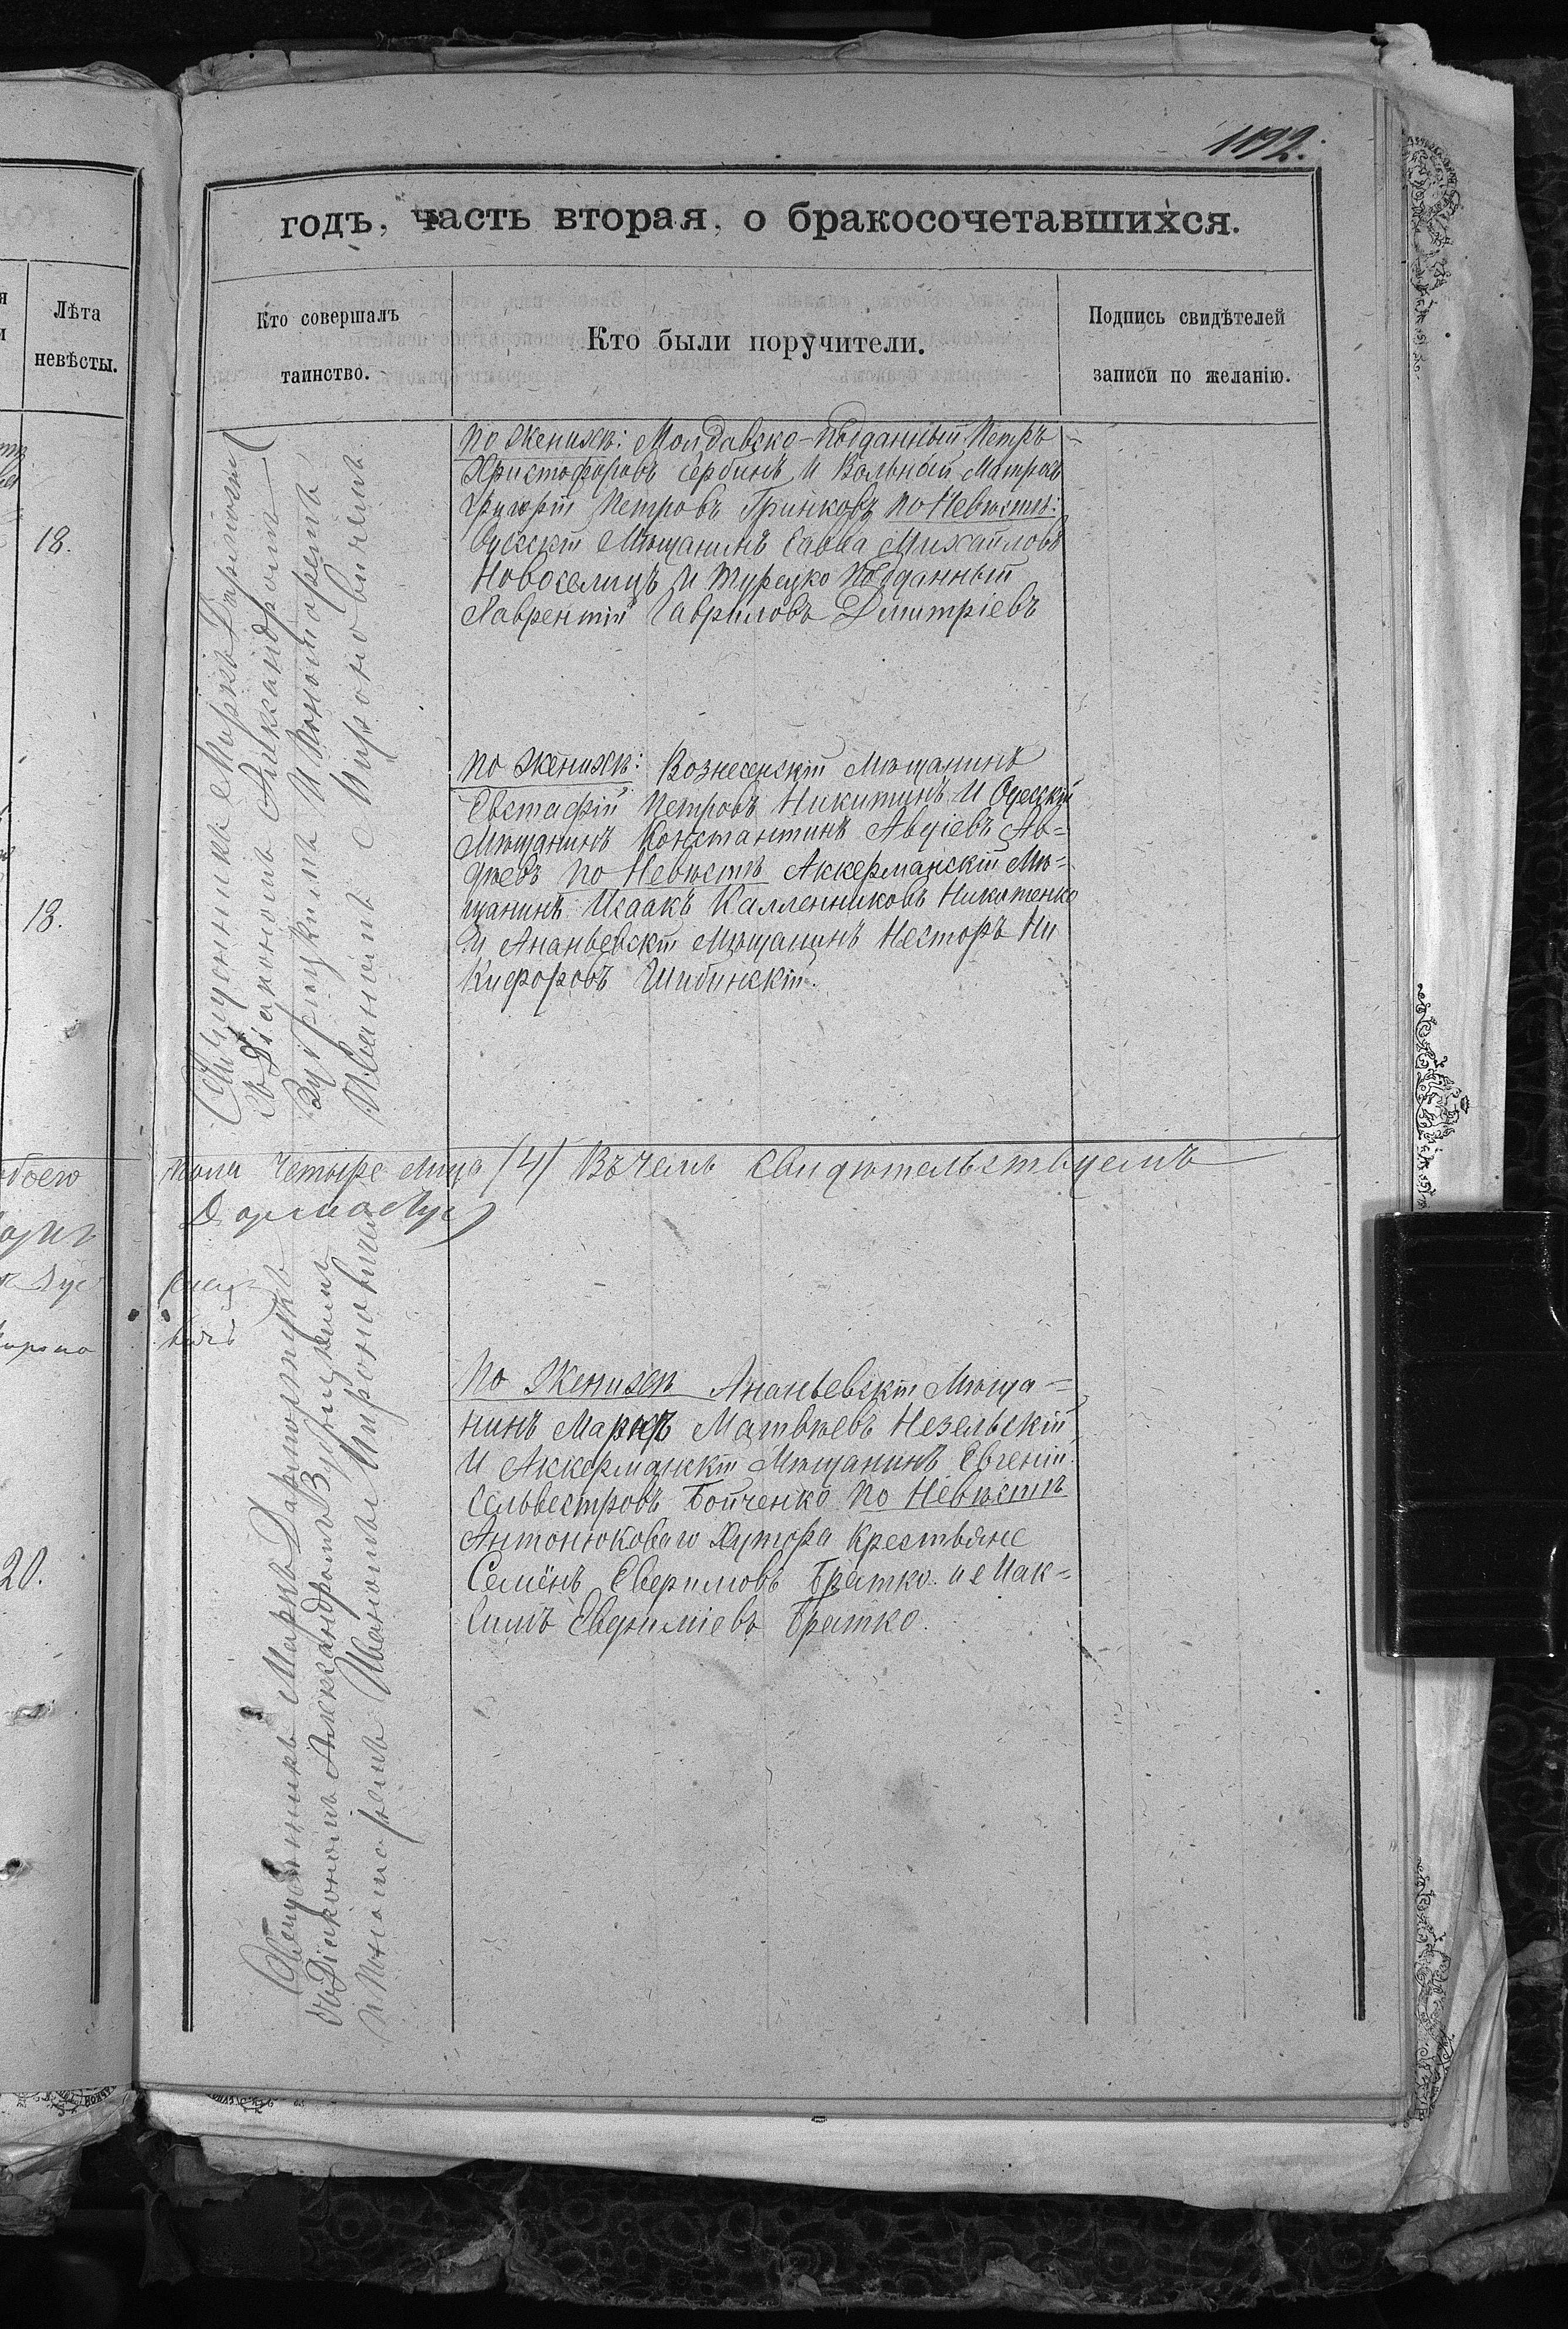 1192.
годъ, часть вторая, о бракосочетавшихся.
Лѣта
невѣсты.
Кто совершалъ
таинство.
Кто были поручители.
Подпись свидѣтелей
записи по желанію.
18.
18.
20.
Священникъ Маркъ
съ Діакономъ Александромъ
и Пономаремъ
Иваномъ Мироновичемъ
по Женихѣ: Молдавско-подданный Петръ
Христофоровъ Сербинъ и Вольный Матрозъ
Григорій Петровъ Гринковъ по Невѣстѣ:
Одесскій Мѣщанинъ Савва Михайловъ
Новоселицъ и Турецко Подданный
Лаврентій Гавриловъ Димитріевъ
по Женихѣ: Вознесенскій Мѣщанинъ
Евстафій Петровъ Никитинъ и Одесскій
Мѣщанинъ Константинъ Авдіевъ Ав-
дѣевъ по Невѣстѣ Аккерманскій Мѣ-
щанинъ Исаакъ Каллениковъ Никотенко
и Ананьевскій Мѣщанинъ Несторъ Ни
кифоровъ Шибинскій.
обоего пола четыре лица /4/ Въ чемъ свидѣтельствуемъ
Священникъ Маркъ
съ Діакономъ Александромъ
и Пономаремъ Иваномъ Мироновичемъ
по Женихѣ Ананьевскій Мѣща-
нинъ Маркъ Матвѣевъ Незельскій
и Аккерманскій Мѣщанинъ Евгеній
Сельвестровъ Бойченко по Невѣстѣ
Антонюковаго Хутора Крестьяне
Семёнъ Братко и Мак-
симъ Евфиміевъ Братко.